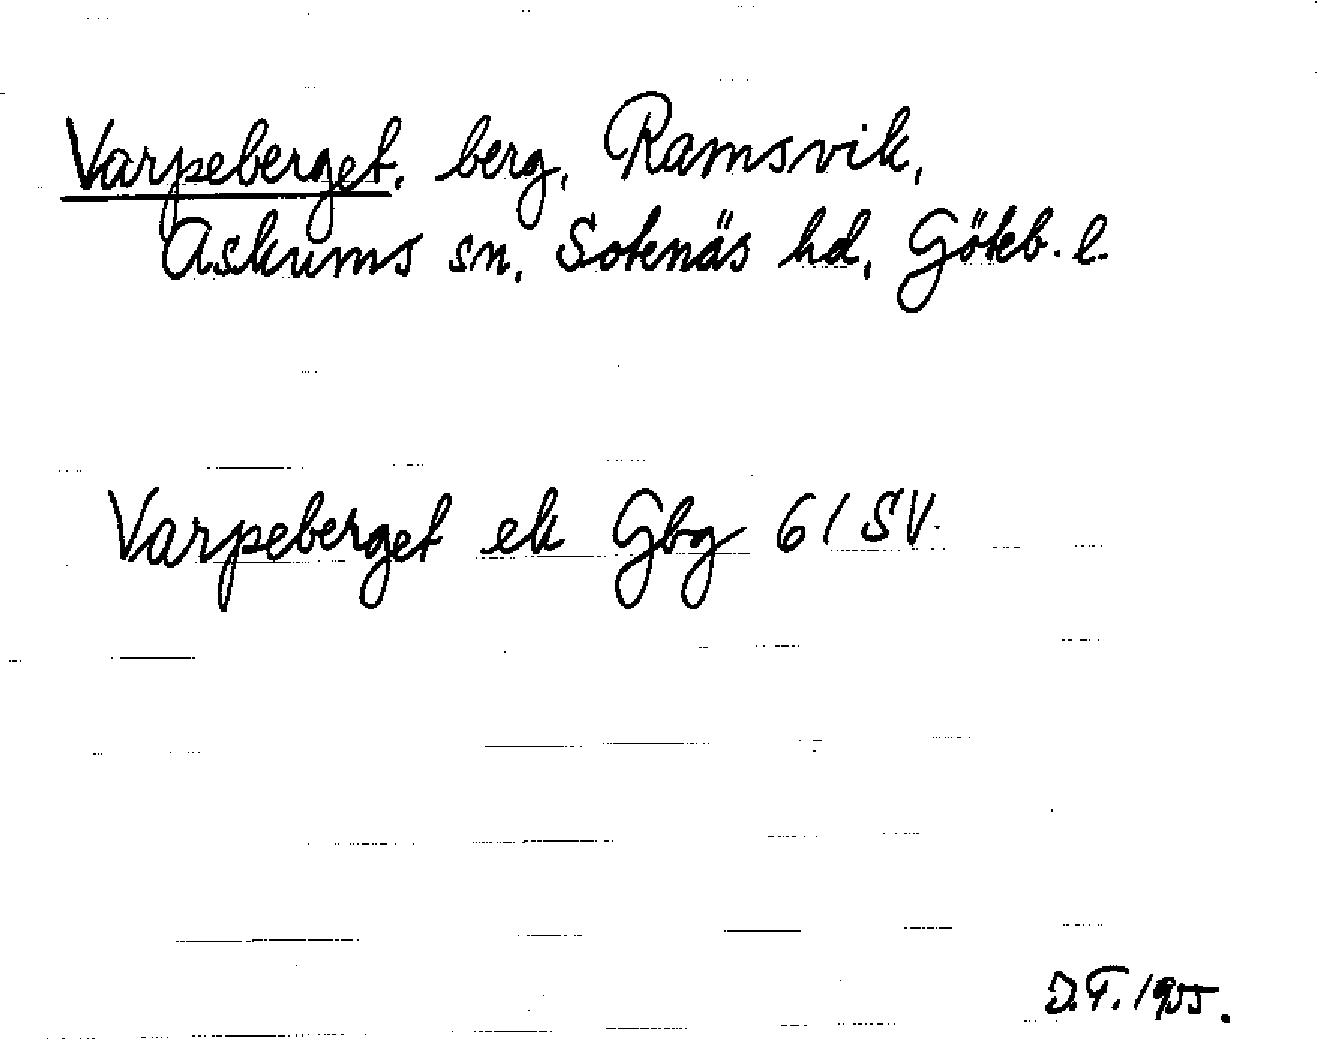 Varpeberget, berg, Ramsvik,
Askums sn, Sotenäs hd, Göteb. l.
Varpeberget ek Gbg 61 SV.
D.F. 1955.